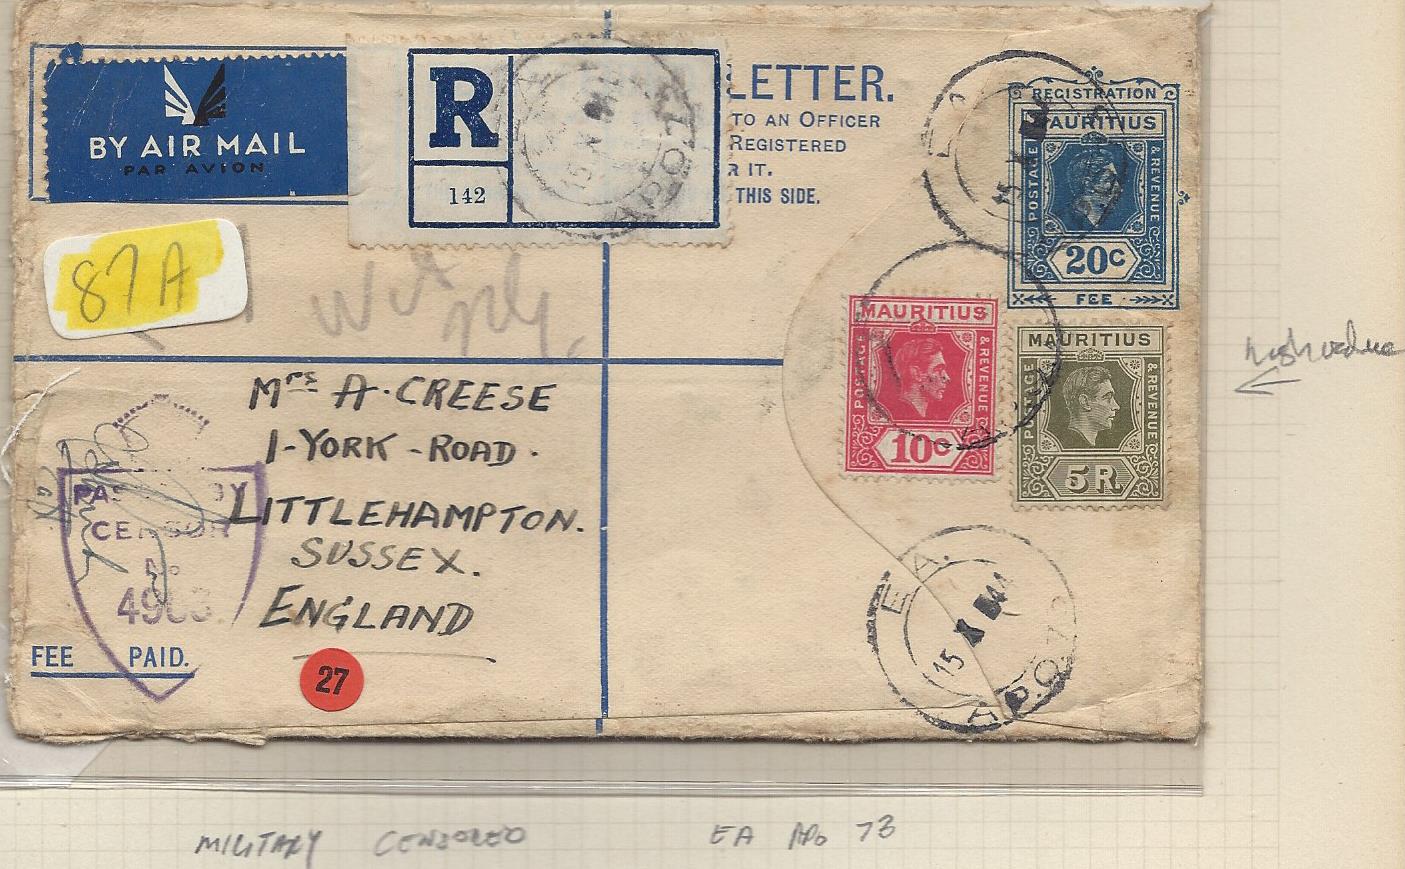 BY AIR MAIL
PAR AVION
R
142
LETTER.
TO AN OFFICER
REGISTERED
R IT.
THIS SIDE.
REGISTRATION
MAURITIUS
POSTAGE
& REVENUE
20c
FEE
87A
MAURITIUS
POSTAGE
& REVENUE
10c
MAURITIUS
POSTAGE
& REVENUE
5R.
high value
Mrs A. CREESE
1-YORK-ROAD.
LITTLEHAMPTON.
SUSSEX.
ENGLAND
CENSOR
No
FEE PAID.
27
E.A.
15 X 44
A.P.O. 73
MILITARY CENSORED EA APO 73